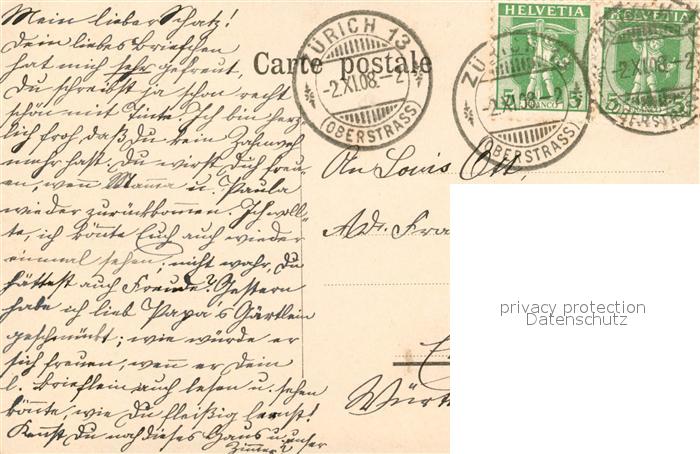 Mein lieber Schatz!
Dein liebes Briefchen
hat mich sehr gefreut,
Du schreibst ja schon recht
schön mit Tinte. Ich bin herz-
lich froh daß Du kein Zahnweh
mehr hast. Du wirst Dich freu-
en, wenn Mamma u. Paula
wieder zurückkommen. Ich woll-
te, ich könnte Euch auch wieder
einmal sehen; nicht wahr, Du
hättest auch Freude? Gestern
habe ich lieb Papa's Gärtlein
geschmückt; wie würde er
sich freuen, wenn er Dein
l. Brieflein auch lesen u. sehen
könnte, wie Du fleißig lernst!
Kennst Du noch dieses Haus u. unser
Zimmer?
Carte postale
ZÜRICH 13
-2.XI.08.-2
(OBERSTRASS)
HELVETIA
5 FRANCO 5
ZÜRICH
-2.XI.08.-2
(OBERSTRASS)
HELVETIA
5 5
-2.XI.08.-2
An Louis Ott,
Adr. Fra
Württ
privacy protection
Datenschutz